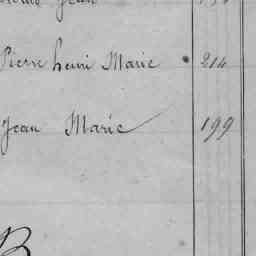 Jean
Pierre henri Marie 214
Jean Marie 199
B